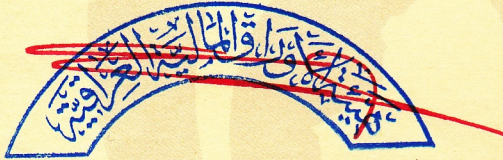 هيئة الأوراق المالية العراقية